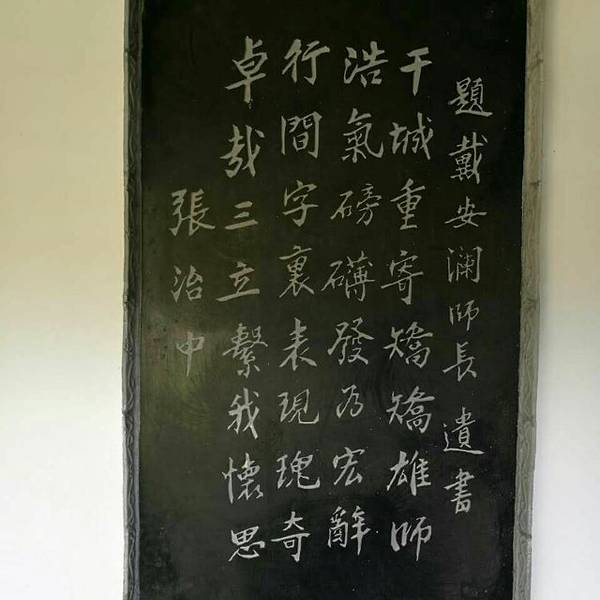 題戴安澜師長遺書
干城重寄矯矯雄師
浩氣磅礴發为宏辭
行間字裏表現瑰奇
卓哉三立繫我懷思
張治中